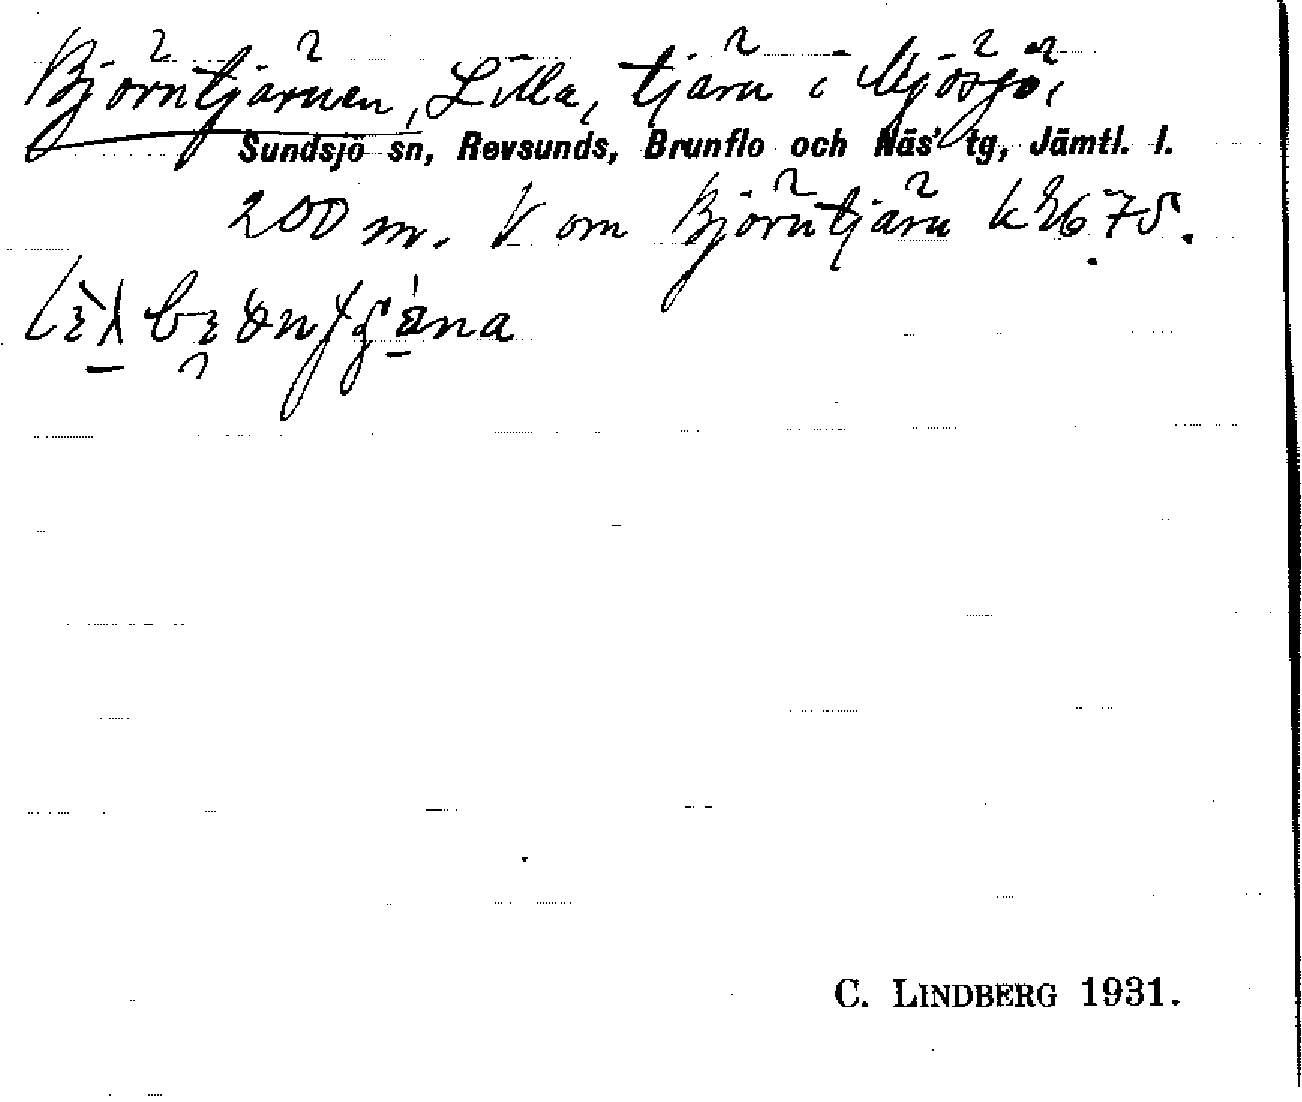 Björntjärnen, Lilla, tjärn i Mjösjö,
Sundsjö sn, Revsunds, Brunflo och Näs' tg, Jämtl. l.
200 m. V om Björntjärn
C. LINDBERG 1931.